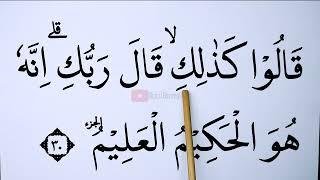 قَالُوْا كَذٰلِكِ ۙ قَالَ رَبُّكِ ؕ اِنَّهٗ
هُوَ الْحَكِيْمُ الْعَلِيْمُ ﴿٣٠﴾